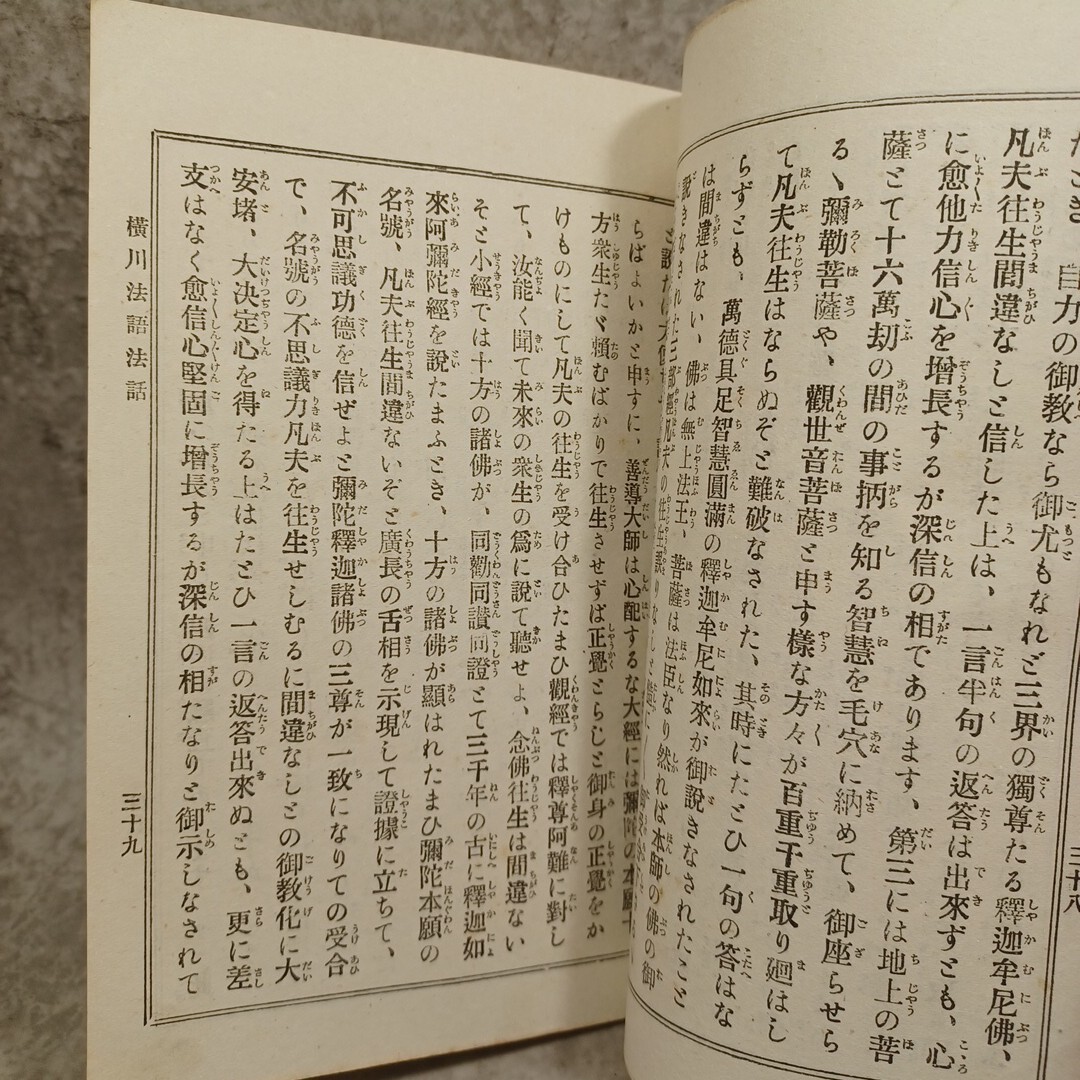 自力の御教なら御尤もなれど三界の獨尊たる釋迦牟尼佛、
凡夫往生間違なしと信した上は、一言半句の返答は出來ずとも、心
に愈他力信心を增長するが深信の相であります、第三には地上の菩
薩とて十六萬劫の間の事柄を知る智慧を毛穴に納めて、御座らせら
るヽ彌勒菩薩や、觀世音菩薩と申す樣な方々が百重千重取り廻はし
て凡夫往生はならぬぞと難破なされた、其時にたとひ一句の答はな
らずとも、萬德具足智慧圓滿の釋迦牟尼如來が御說きなされたこと
は間違はない、佛は無上法王、菩薩は法臣なり然れば本師の佛の御
說きなされた三部經凡夫の往生誤りなし
三十八
らばよいかと申すに、善導大師は心配するな大經には彌陀の本願十
方衆生たヾ賴むばかりで往生させずば正覺とらじと御身の正覺をか
けものにして凡夫の往生を受け合ひたまひ觀經では釋尊阿難に對し
て、汝能く聞て未來の衆生の爲に說て聽せよ、念佛往生は間違ない
ぞと小經では十方の諸佛が、同勸同讃同證とて三千年の古に釋迦如
來阿彌陀經を說たまふとき、十方の諸佛が顯はれたまひ彌陀本願の
名號、凡夫往生間違ないぞと廣長の舌相を示現して證據に立ちて、
不可思議功德を信ぜよと彌陀釋迦諸佛の三尊が一致になりての受合
で、名號の不思議力凡夫を往生せしむるに間違なしとの御敎化に大
安堵、大決定心を得たる上はたとひ一言の返答出來ぬとも、更に差
支はなく愈信心堅固に增長するが深信の相たなりと御示しなされて
橫川法語法話
三十九